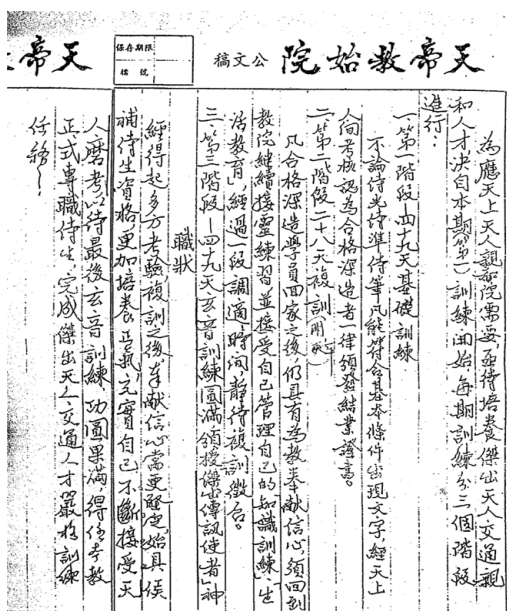 天帝教始院
公文稿
保存期限
檔號
天帝
為應天上天人親和院需要,亟待培養傑出天人交通親
和人才決自本期(第一)訓練開始每期訓練分三個階段
進行:
一、第一階段—四十九天基礎訓練
不論侍光侍準侍筆凡能符合基本條件出現文字,經天上
人間考核認為合格深造者一律頒發結業證書。
二、第二階段—二十八天複訓
凡合格深造學員回家之後仍具有為教奉獻信心須回到
教院繼續接靈練習並接受自己管理自己的「知識訓練」「生
活教育」,經過一段調適時間,靜待複訓徵召。
三、第三階段—四十九天玄音訓練圓滿領授「傑出傳訊使者」神
職狀
經得起多方考驗複訓之後奉獻信心當更堅定,始具候
補侍生資格更加培養正氣,充實自己不斷接受天
人磨考以待最後玄音訓練,功圓果滿,得任本教
正式專職侍生,完成傑出天人交通人才嚴格訓練
任務。